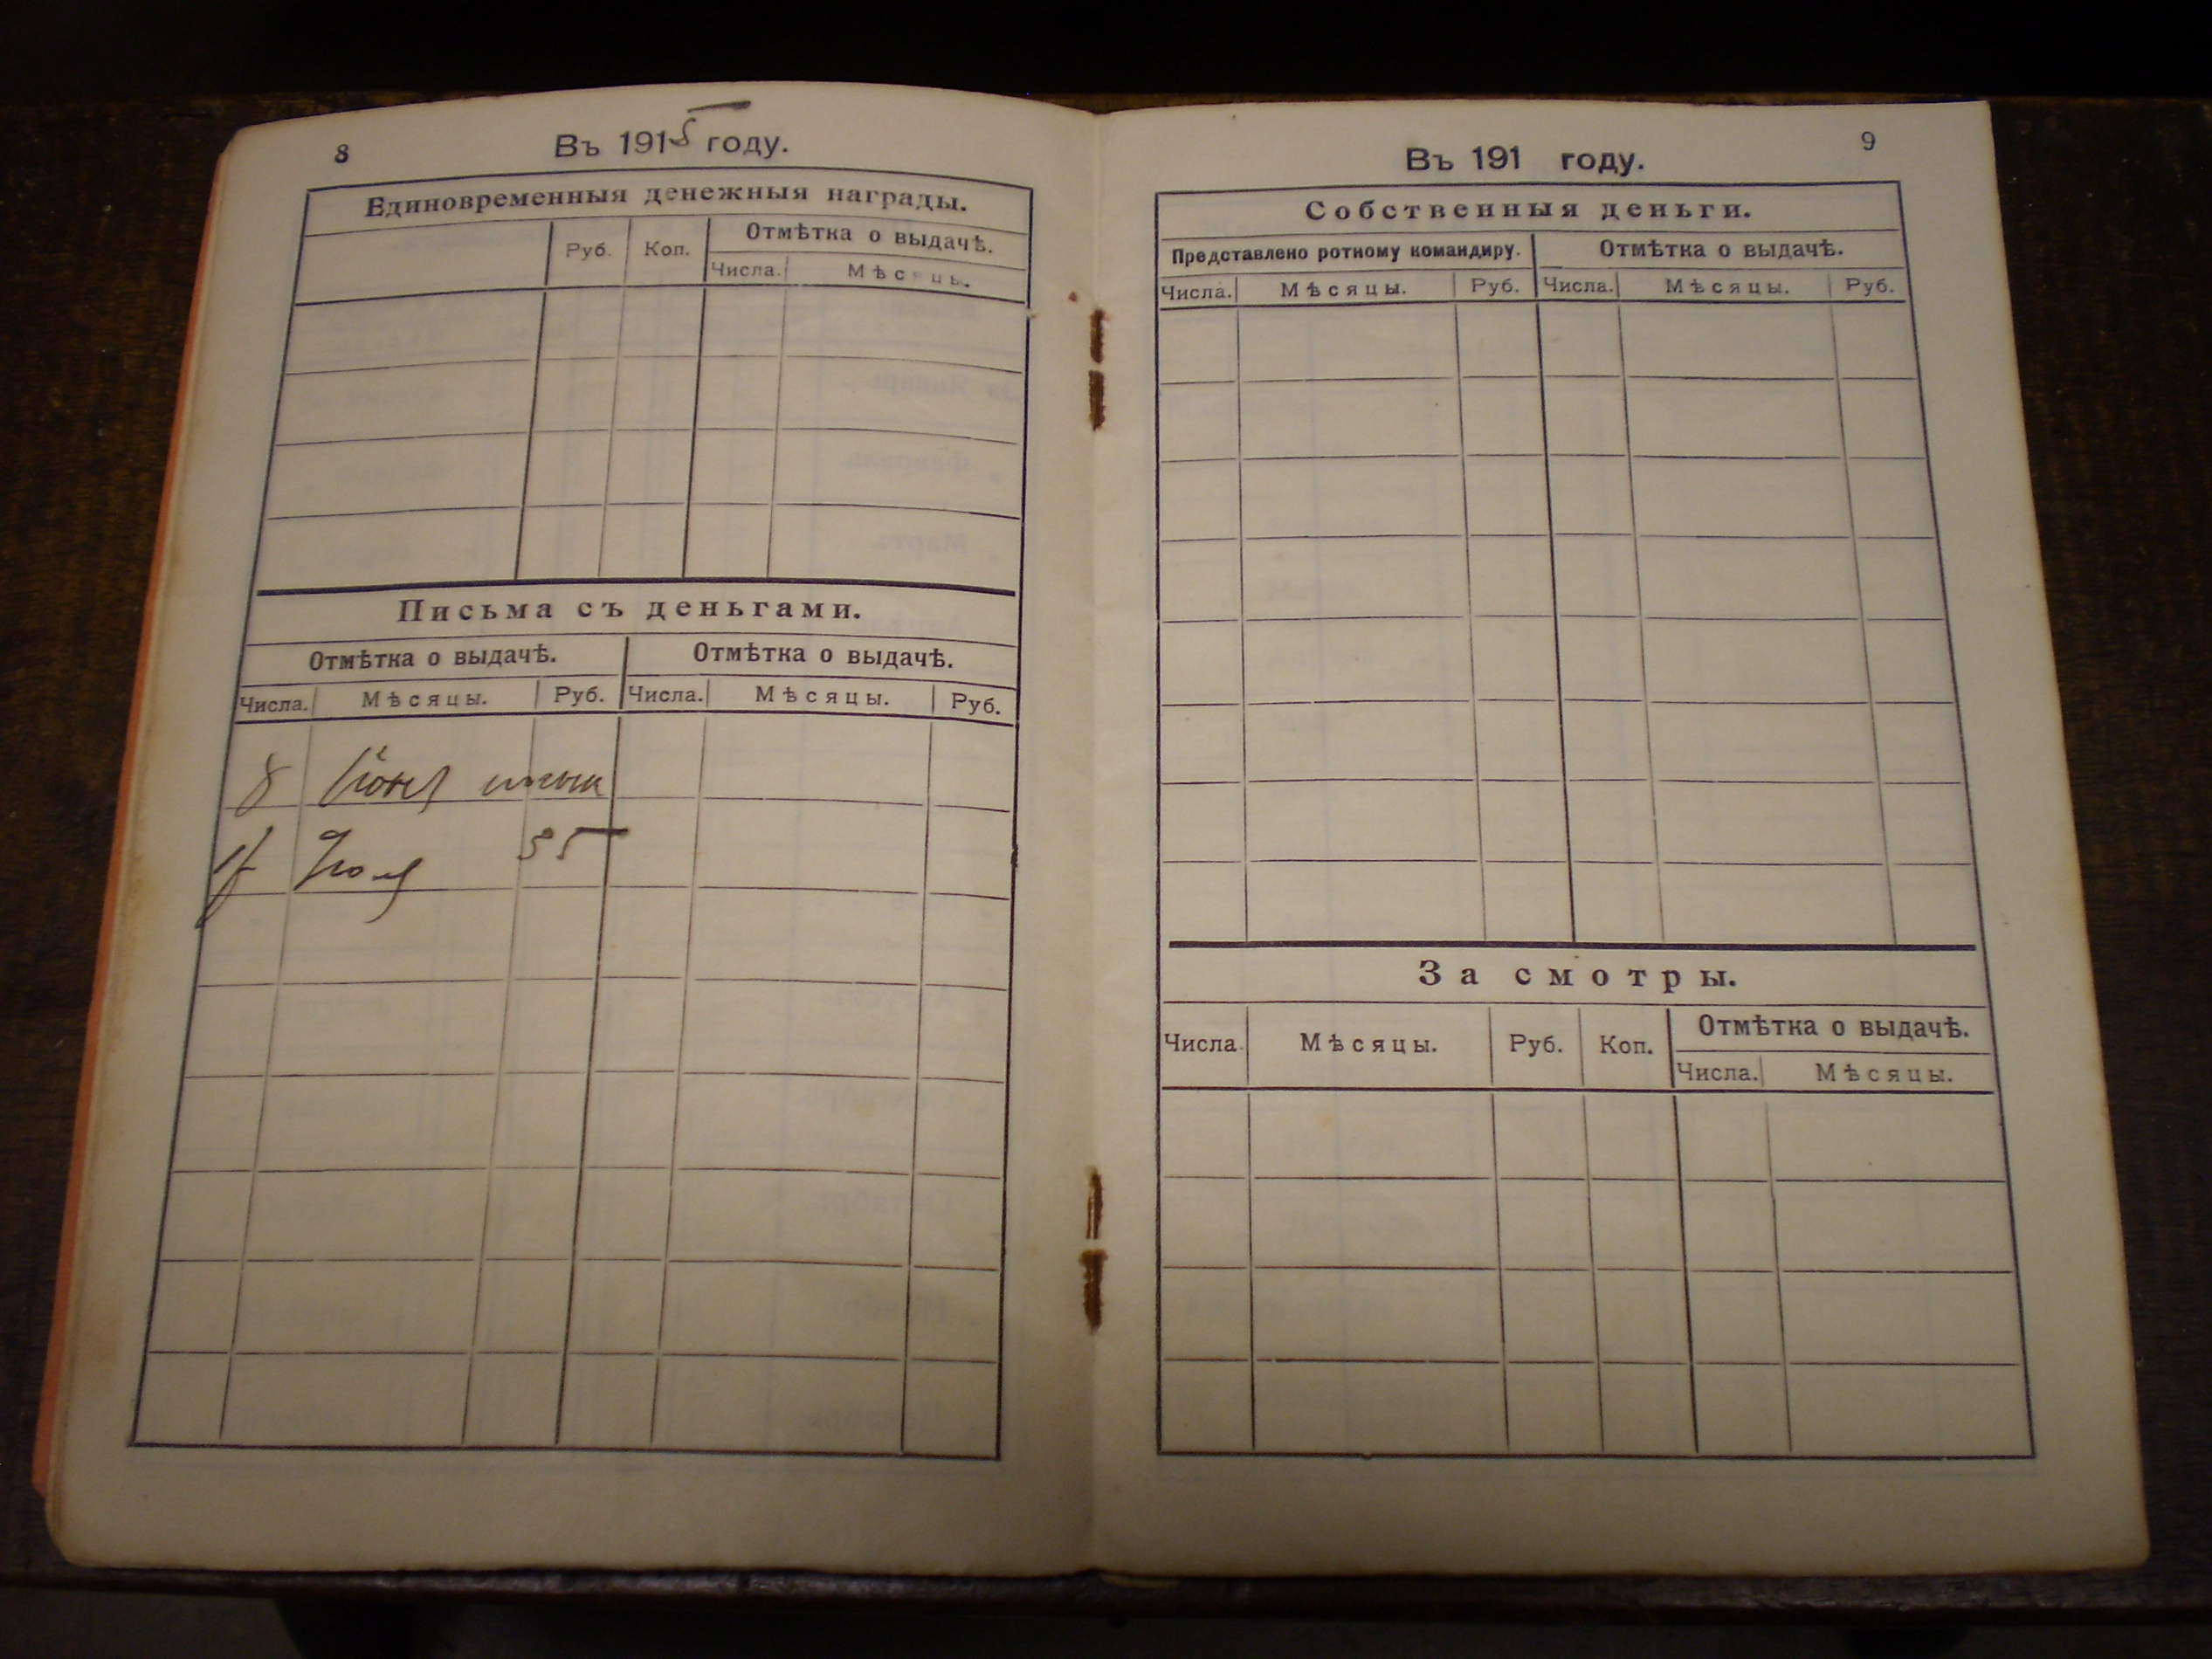 8
Въ 1915 году.
Единовременныя денежныя награды.
Руб. Коп. Отмѣтка о выдачѣ.
Числа. Мѣсяцы.
Письма съ деньгами.
Отмѣтка о выдачѣ. Отмѣтка о выдачѣ.
Числа. Мѣсяцы. Руб. Числа. Мѣсяцы. Руб.
8
Июля 35
9
Въ 191 году.
Собственныя деньги.
Представлено ротному командиру. Отмѣтка о выдачѣ.
Числа. Мѣсяцы. Руб. Числа. Мѣсяцы. Руб.
За смотры.
Числа. Мѣсяцы. Руб. Коп. Отмѣтка о выдачѣ.
Числа. Мѣсяцы.